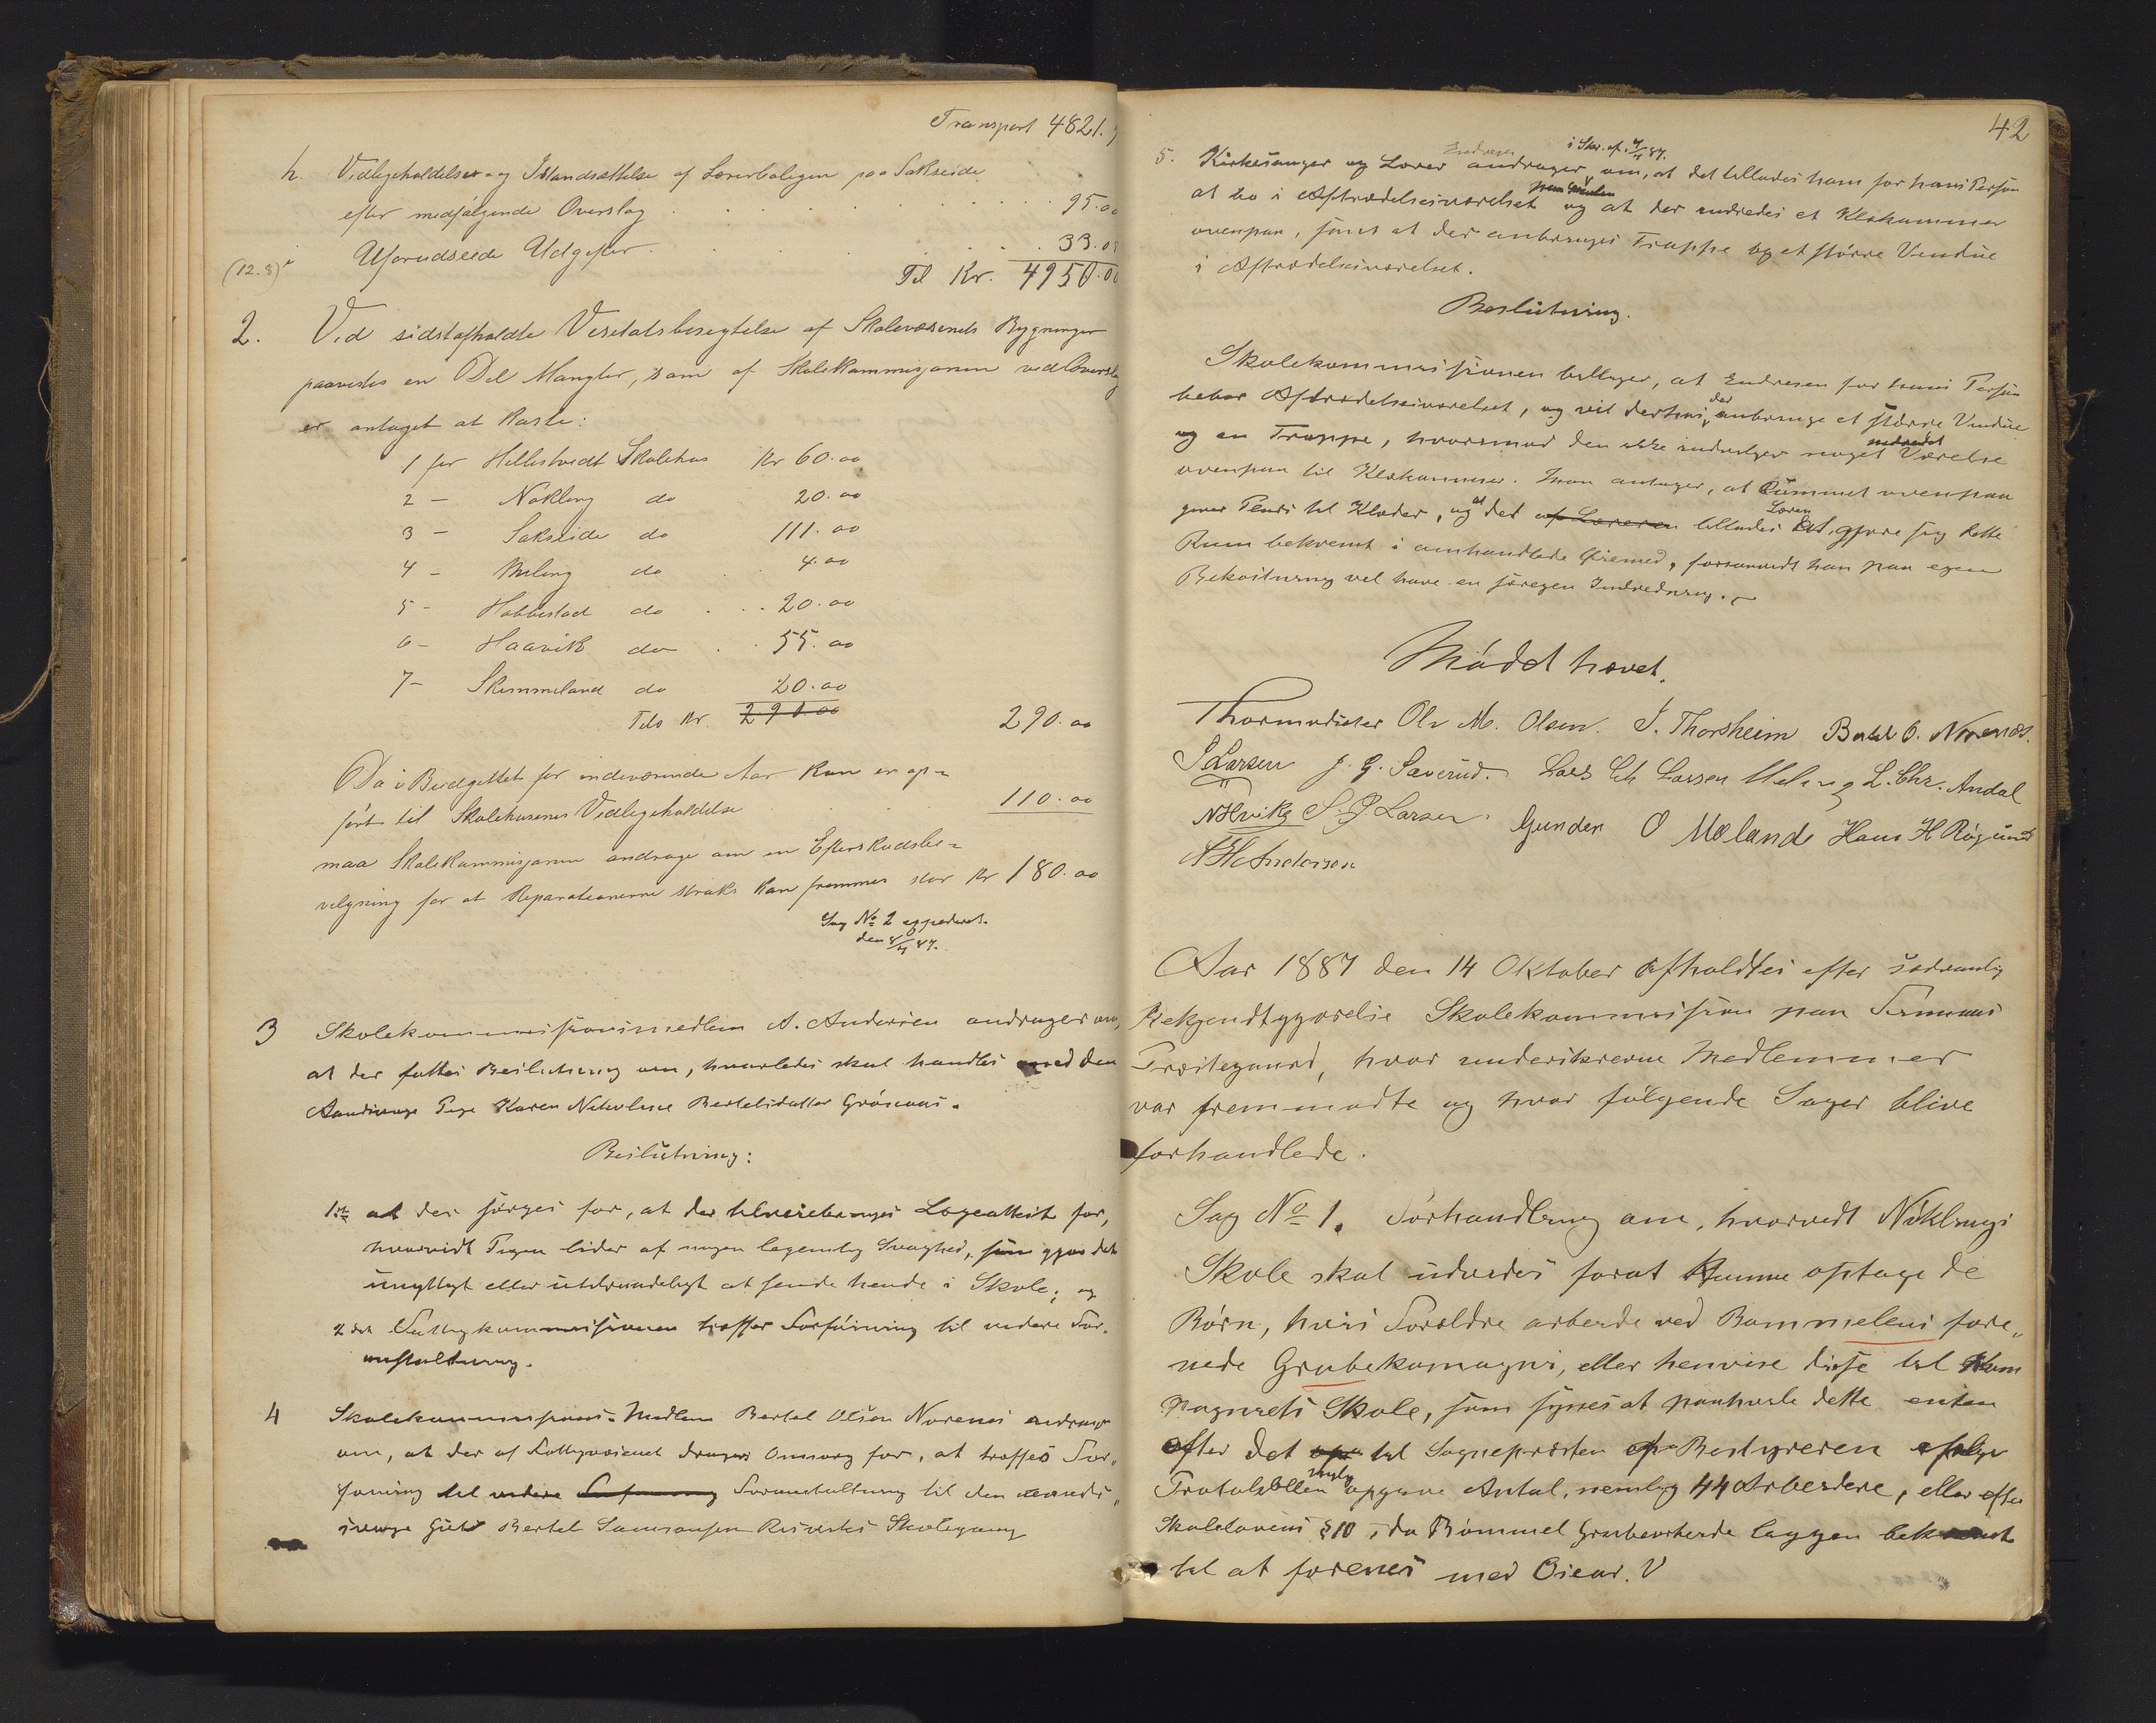 Transport 4821.
h. Vedligeholdelse og Istandsættelse af Lærerboligen paa Sakseide
efter medfølgende Overslag . . . 95.00
(12.8) i Uforudseede Udgifter . . . 33.0
Til Kr. 4950.00
2. Ved sidstafholdte Visitatsbesigtelse af Skolevæsenets Bygninger
paavistes en Del Mangler, som af Skolekommisjonen ved Overslag
er antaget at koste:
1 for Hillestvedt Skolehus Kr 60.00
2 – Nøkling do 20.00
3 – Sakseide do 111.00
4 – Meling do 4.00
5 – Habbestad do . . . 20.00
6 – Haavik do . . 55.00
7 – Skimmeland do 20.00
Tils Kr. 290.00 290.00
Da i Budgettet for indeværende Aar kun er op-
ført til Skolehusenes Vedligeholdelse . . . 110.00
maa Skolekommisjonen andrage om en Efterskudsbe-
vilgning for at Reparationerne straks kan fremmes stor Kr 180.00
Sag No 2 expederet
den 8/4 87.
3 Skolekommissionsmedlem A. Andersen andrager om,
at der fattes Beslutning om, hvorledes skal handles med den
Aandssvage Pige Karen Nikoline Bertelsdatter Grónaas.
Beslutning:
1st at der sørges for, at der tilveiebringes Lægeattest for,
hvorvidt Pigen lider af nogen legemlig Svaghed, som gjør det
unyttigt eller utilraadeligt at sende hende i Skole; og
2det Fattigkommissionen træffer Forføining til videre For-
anstaltning.
4 Skolekommissions-Medlem Bertel Olsen Norenes andrager
om, at der af Fattigvæsenet drages Omsorg for, at træffes For-
føining til videre Foranstaltning til den aands-
svage Gut Bertel Samsonsen Skolegang
42
5. Kirkesanger og Lærer Endresen andrager i Skr. af 4/4 87. om, at det tillades ham for hans Person
at bo i Aftrædelsesværelset og at der indredes et Klækammer
ovenpaa, samt at der anbringes Trappe og et større Vindue
i Aftrædelsesværelset.
Beslutning.
Skolekommissionen bifaller, at Endresen for hans Person
bebor Aftrædelsesværelset, og vil derhos der anbringe et større Vindue
og en Trappe, hvorimod den ikke indvilger noget indredet Værelse
ovenpaa til Klækammer. Man antager, at Rummet ovenpaa
giver Plads til Klæder, og at det af Læreren tillades Læren at gjøre sig dette
Rum bekvemt i omhandlede Øiemed, forsaavidt han paa egen
Bekostning vil have en særegen Indredning. –
Mødet hævet.
Thormodsæter Ole M. Olsen. J. Thorsheim Bertel O. Norenæs.
S Larsen J. G. Saverud. Lars Ch Larsen Meling L. Chr. Andal
N Hviky S. J Larsen. Gunder O Mælande Hans H Røgund
A H Anderson
Aar 1887 den 14 Oktober afholdtes efter sædvanlig
Bekjendtgjørelse Skolekommission paa Finnaas
Præstegaard, hvor underskrevne Medlemmer
var fremmødte og hvor følgende Sager bleve
forhandlede.
Sag No 1. Forhandling om, hvorvidt Nöklings
Skole skal udvides forat kunne optage de
Børn, hvis Forældre arbeide ved Bømmeløens fore-
nede Grubekompagni, eller henvise disse til Kom
pagniets Skole, som synes at paahvile dette enten
efter det til Sognepræsten af Bestyreren ifølge
Protokollen opgivne Antal, nemlig 44 Arbeidere, eller efter
Skolelovens § 10, da Bømmel Grubearbeide ligger bekvemt
til at forenes med Öiear. V